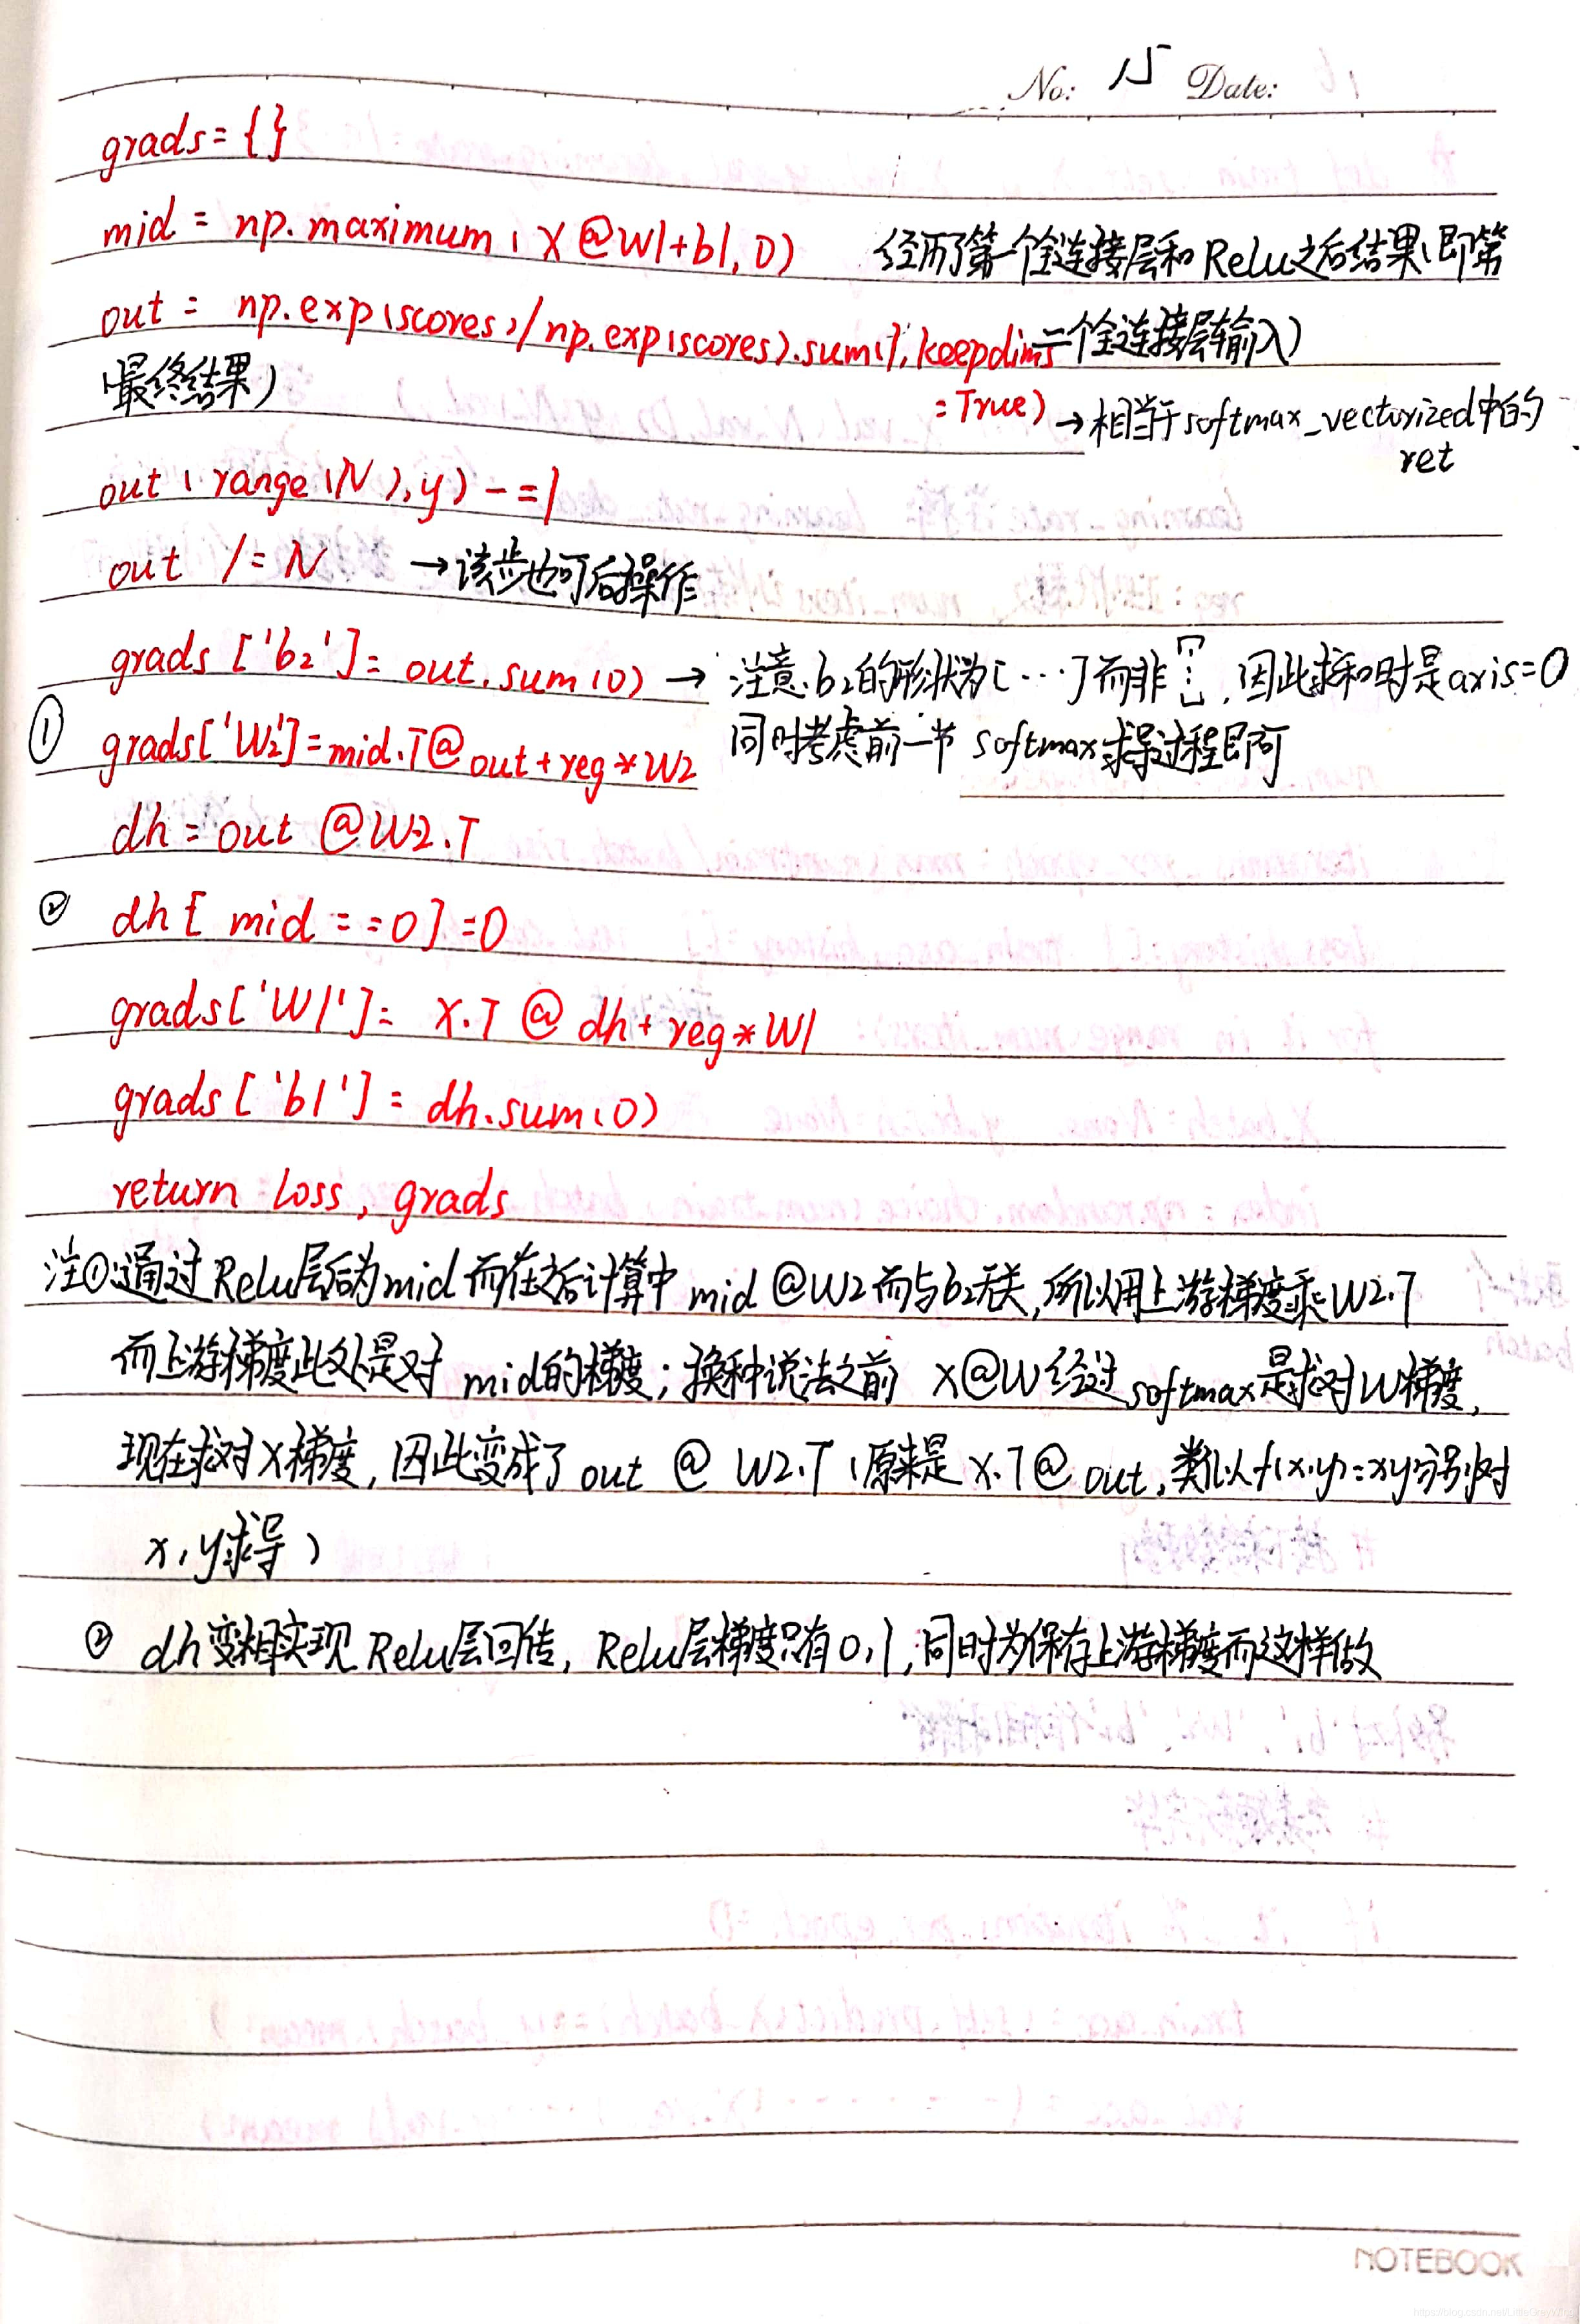 No: 15 Date:
grads = {}
mid = np.maximum(X@W1+b1, 0) 经历了第一个全连接层和Relu之后结果(即第
out = np.exp(scores)/np.exp(scores).sum(1,keepdims 二个全连接层输入)
(最终结果) =True) →相当于softmax_vectorized中的
ret
out(range(N),y) -=1
out /= N →该步也可后操作
grads ['b2']= out.sum(0) → 注意b2的形状为[…]而非[⋮],因此求和时是axis=0
① grads['W2']=mid.T@out+reg*W2 同时考虑前一节 softmax求导过程即可
dh = out @W2.T
② dh[mid==0]=0
grads['W1']= X.T @ dh+reg*W1
grads['b1']= dh.sum(0)
return loss, grads
注①:通过Relu层后为mid而在之后计算中 mid @W2而与b2无关,所以用上游梯度乘W2.T
而上游梯度此处是对 mid的梯度;换种说法之前 X@W经过softmax是求对W梯度,
现在求对X梯度,因此变成了out @ W2.T(原来是X.T@out,类似f(x,y)=xy分别对
x,y求导)
② dh变相实现Relu层回传,Relu层梯度只有0,1,同时为保存上游梯度而这样做
NOTEBOOK